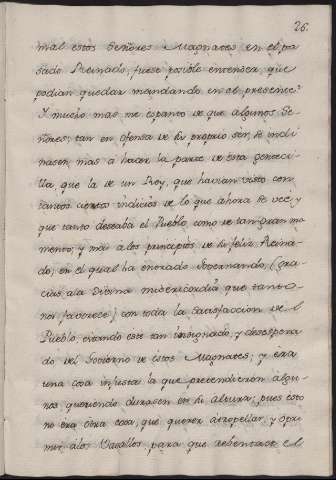 26.
mal estos Señores Magnates en el pa-
sado Reinado, fuese posible entender, que
podian quedar mandando en el presente?
Y mucho mas me espanto de que algunos Se-
ñores, tan en ofensa de su proprio ser, se incli-
nasen mas á hacer la parte de esta genteci-
lla que la de un Rey, que havian visto con
tantos ciertos indicios de lo que ahora se vee, y
que tanto deseaba el Pueblo, como de tan gran mo-
mento, y mas á los principios de su feliz Reina-
do, en el qual ha entrado Governando, (gra-
cias á la Divina misericordia que tanto
nos favorece) con toda la Satisfaccion del
Pueblo, estando este tan indignado, y desespera-
do del Govierno de estos Magnates, y era
una cosa injusta la que pretendieron algu-
nos, queriendo durasen en su altura, pues esto
no era otra cosa, que querer atropellar, y opri-
mir á los Vasallos, para que rebentase el